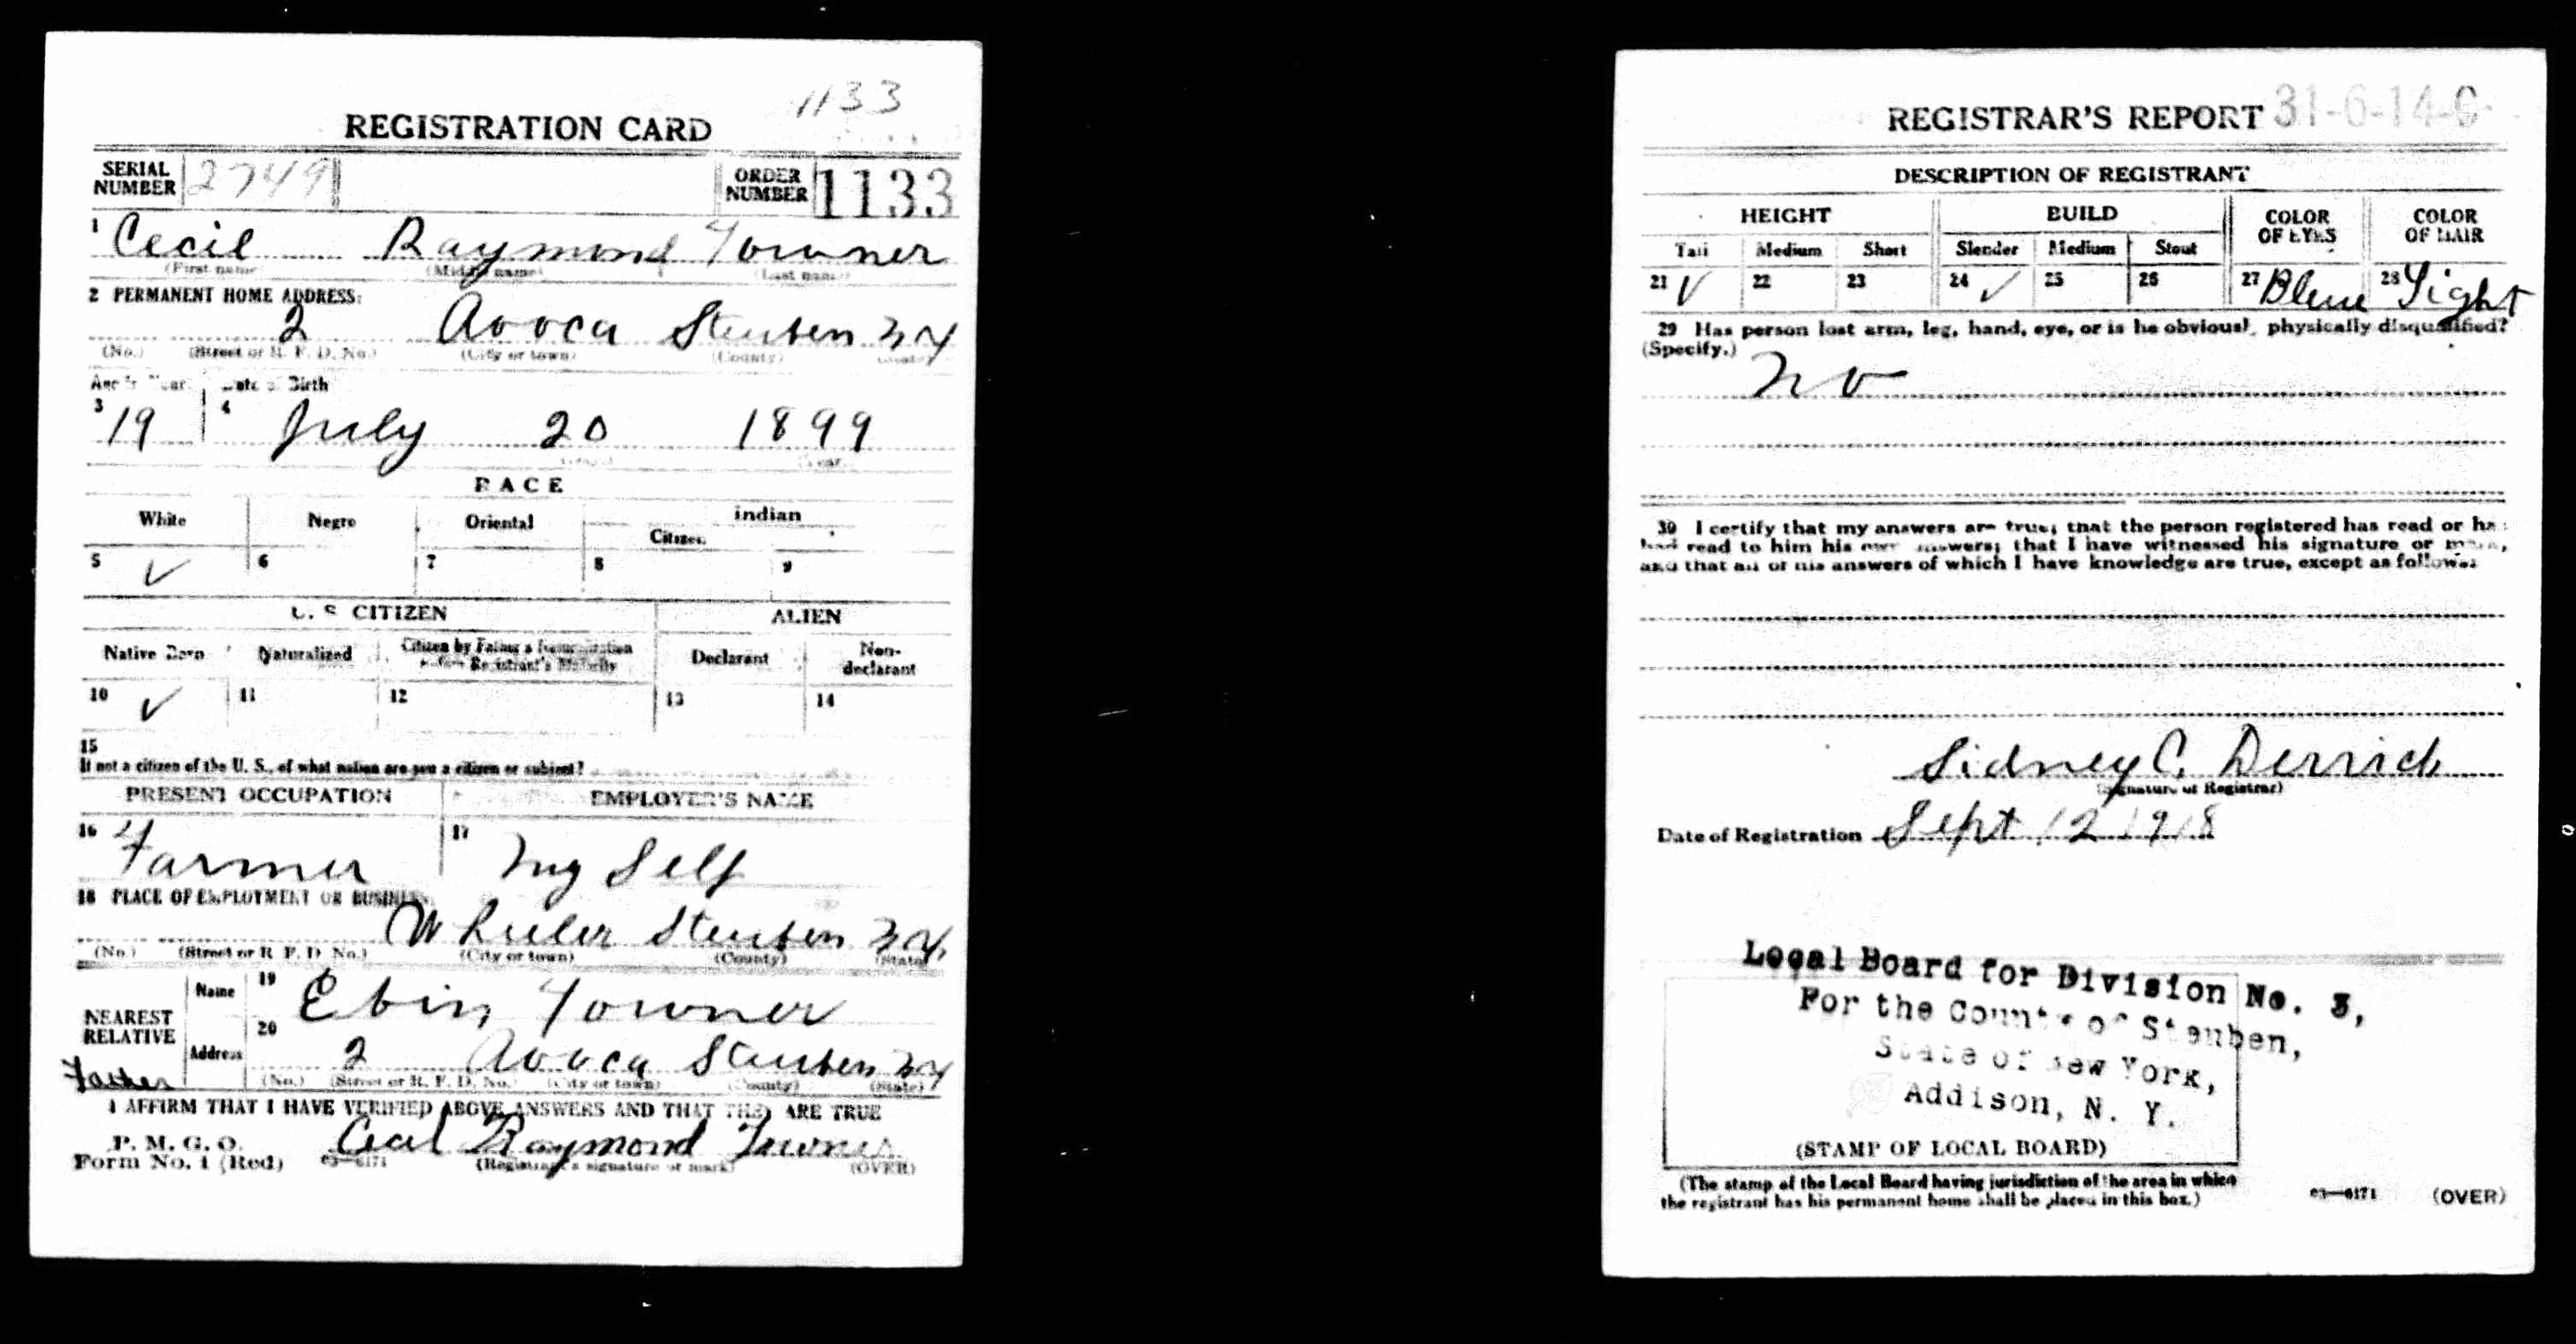 1133
REGISTRATION CARD
SERIAL NUMBER 2749 ORDER NUMBER 1133
1 Cecil Raymond Towner
(First name) (Middle name) (Last name)
2 PERMANENT HOME ADDRESS:
2 Avoca Steuben NY
(No.) (Street or R. F. D. No.) (City or town) (County) (State)
Age in Years Date of Birth
3 19 4 July 20 1899
RACE
White Negro Oriental Indian
Citizen
5 ✓ 6 7 8 9
U. S. CITIZEN ALIEN
Native Born Naturalized Citizen by Father's Naturalization before Registrant's Majority Declarant Non-declarant
10 ✓ 11 12 13 14
15
If not a citizen of the U. S., of what nation are you a citizen or subject?
PRESENT OCCUPATION EMPLOYER'S NAME
16 Farmer 17 My Self
18 PLACE OF EMPLOYMENT OR BUSINESS:
Wheeler Steuben NY
(No.) (Street or R. F. D. No.) (City or town) (County) (State)
NEAREST RELATIVE Name 19 Ebin Towner
Father Address 20 2 Avoca Steuben NY
(No.) (Street or R. F. D. No.) (City or town) (County) (State)
I AFFIRM THAT I HAVE VERIFIED ABOVE ANSWERS AND THAT THEY ARE TRUE
P. M. G. O.
Form No. 1 (Red) 03—6171 Cecil Raymond Towner
(Registrant's signature or mark) (OVER)
REGISTRAR'S REPORT 31-6-14-C
DESCRIPTION OF REGISTRANT
HEIGHT BUILD COLOR OF EYES COLOR OF HAIR
Tall Medium Short Slender Medium Stout
21 ✓ 22 23 24 ✓ 25 26 27 Blue 28 Light
29 Has person lost arm, leg, hand, eye, or is he obviously physically disqualified?
(Specify.)
No
30 I certify that my answers are true; that the person registered has read or has
had read to him his own answers; that I have witnessed his signature or mark,
and that all of his answers of which I have knowledge are true, except as follows:
Sidney C. Derrick
(Signature of Registrar)
Date of Registration Sept 12 1918
Local Board for Division No. 3,
For the County of Steuben,
State of New York,
Addison, N. Y.
(STAMP OF LOCAL BOARD)
(The stamp of the Local Board having jurisdiction of the area in which
the registrant has his permanent home shall be placed in this box.)
03—6171 (OVER)